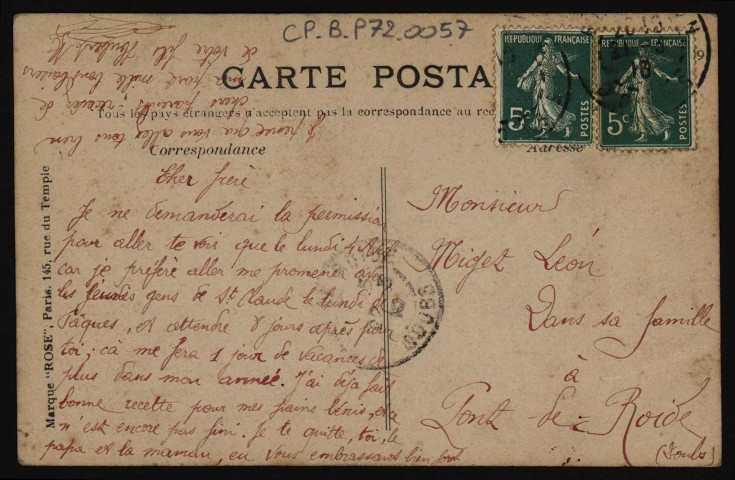 CP.B.P72.0057
CARTE POSTA
Tous les pays étrangers n'acceptent pas la correspondance au rec
Correspondance
Adresse
RÉPUBLIQUE FRANÇAISE
5c
POSTES
RÉPUBLIQUE FRANÇAISE
5c
POSTES
Marque "ROSE", Paris. 145, rue du Temple
Cher frère
Je ne demanderai la permission
pour aller te voir que le lundi 4 Avril
car je préfère aller me promener avec
les jeunes gens de St Claude le lundi de
Pâques, et attendre 8 jours après pour
toi; çà me fera 1 jour de vacances de
plus dans mon année. J'ai déjà fait
bonne recette pour mes pains bénis, et ce
n'est encore pas fini. Je te quitte, toi, le
papa et la maman, en vous embrassant bien fort
Je pense que vous allez tous bien
chers parents; recevez de
ma part mille bons baisers
de votre fils
Monsieur
Migez Léon
Dans sa famille
à
Pont-de-Roide
(Doubs)
DOUBS